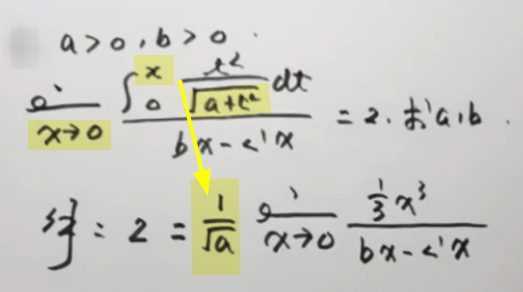 a > 0, b > 0.
lim_{x→0} \frac{\int_0^x \frac{t^2}{\sqrt{a+t^2}} dt}{bx - sin x} = 2. 求 a, b
解: 2 = \frac{1}{\sqrt{a}} lim_{x→0} \frac{\frac{1}{3}x^3}{bx - sin x}